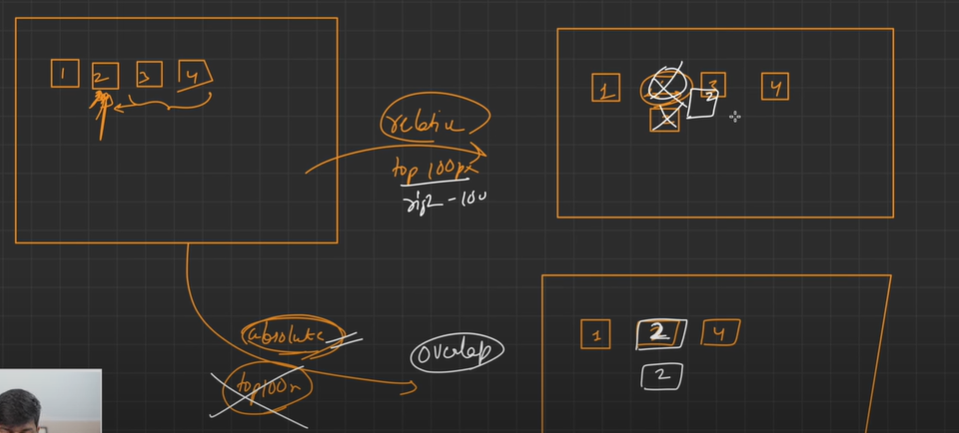 1 2 3 4
relative
top 100px
1 3 4
2
absolute
top 100
overlap
1 2 4
2